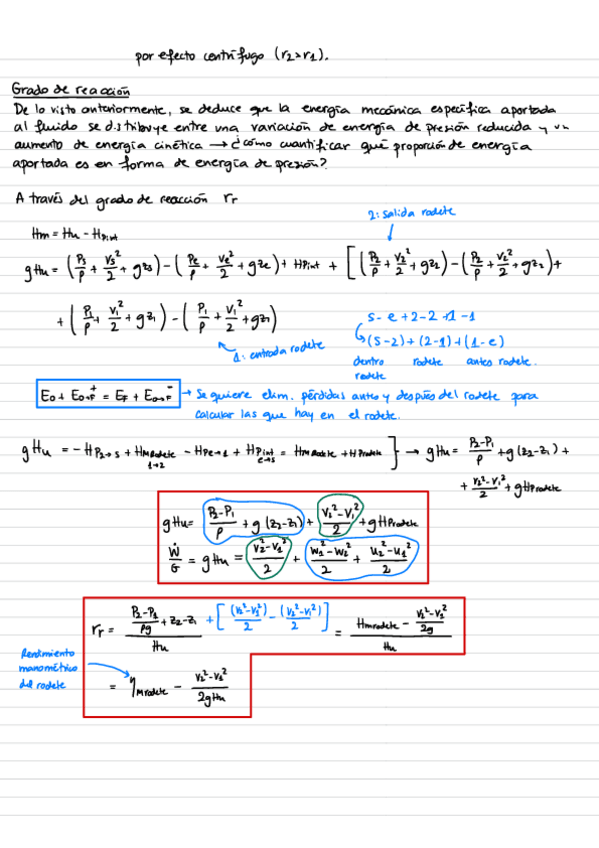 por efecto centrífugo (r2>r1).
Grado de reacción
De lo visto anteriormente, se deduce que la energía mecánica específica aportada
al fluido se distribuye entre una variación de energía de presión reducida y un
aumento de energía cinética → ¿cómo cuantificar qué proporción de energía
aportada es en forma de energía de presión?
A través del grado de reacción rr
2: salida rodete
Hm = Hu - HPint
gHu = (Ps/ρ + Vs²/2 + gzs) - (Pe/ρ + Ve²/2 + gze) + HPint + [(P2/ρ + V2²/2 + gz2) - (P2/ρ + V2²/2 + gz2) +
+ (P1/ρ + V1²/2 + gz1) - (P1/ρ + V1²/2 + gz1)
1: entrada rodete
s - e + 2 - 2 + 1 - 1
(s-2) + (2-1) + (1-e)
dentro rodete antes rodete.
rodete
E0 + E0→F⁺ = EF + E0→F⁻
→ Se quiere elim. pérdidas antes y después del rodete para
calcular las que hay en el rodete.
gHu = - HP2→s + HmRodete 1→2 - HPe→1 + HPint e→s = HmRodete + HProdete } → gHu = P2-P1/ρ + g(z2-z1) +
+ V2²-V1²/2 + gHProdete
gHu = P2-P1/ρ + g(z2-z1) + V2²-V1²/2 + gHProdete
Ẇ/G = gHu = V2²-V1²/2 + W1²-W2²/2 + U2²-U1²/2
rr = (P2-P1/ρg + z2-z1 + [(V2²-V1²)/2 - (V2²-V1²)/2]) / Hu = (Hmrodete - V2²-V1²/2g) / Hu
Rendimiento
manométrico
del rodete
= ηMrodete - V2²-V1²/2gHu